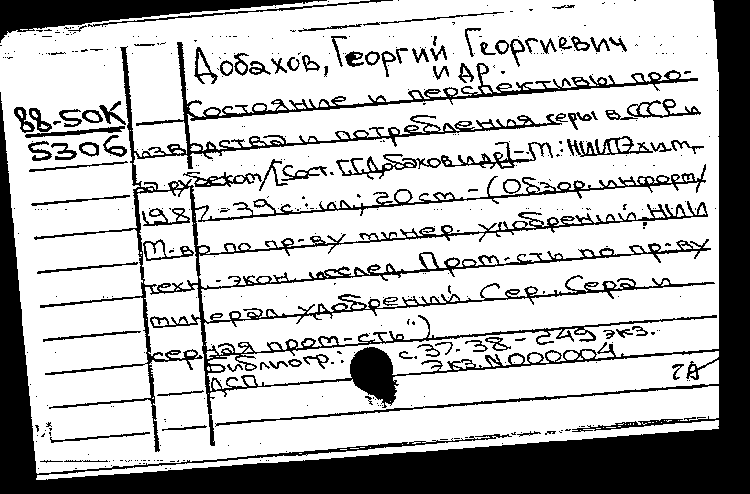 Добахов, Георгий Георгиевич
и др.
88-50К
5306
Состояние и перспективы про-
изводства и потребления серы в СССР и
за рубежом / [Сост. Г.Г. Добахов и др.] - М.: НИИТЭхим,
1987. - 39 с.: ил.; 20 см. - (Обзор. информ /
М-во по пр-ву минер. удобрений, НИИ
техн.-экон. исслед. Пром-сть по пр-ву
минерал. удобрений. Сер. „Сера и
серная пром-сть")
Библиогр.: с. 37-38. - 249 экз.
ДСП. Экз. N000004.